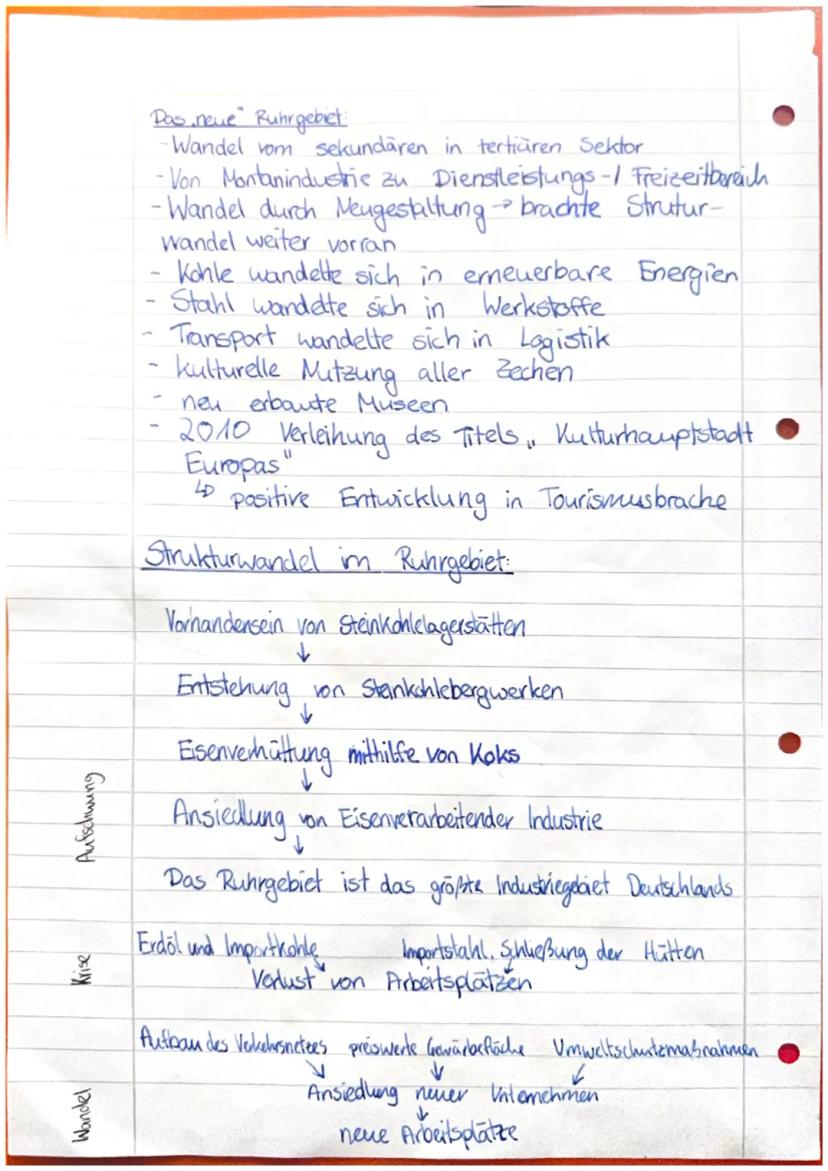 Das „neue" Ruhrgebiet:
- Wandel vom sekundären in tertiären Sektor
- Von Montanindustrie zu Dienstleistungs-/ Freizeitbereich
- Wandel durch Neugestaltung → brachte Strutur-
wandel weiter vorran
- Kohle wandelte sich in erneuerbare Energien
- Stahl wandelte sich in Werkstoffe
- Transport wandelte sich in Logistik
- kulturelle Nutzung aller Zechen
- neu erbaute Museen
- 2010 Verleihung des Titels „ Kulturhauptstadt
Europas"
↳ positive Entwicklung in Tourismusbrache
Strukturwandel im Ruhrgebiet:
Vorhandensein von Steinkohlelagerstätten
↓
Entstehung von Steinkohlebergwerken
↓
Eisenverhüttung mithilfe von Koks
↓
Aufschwung
Ansiedlung von Eisenverarbeitender Industrie
↓
Das Ruhrgebiet ist das größte Industriegebiet Deutschlands
Krise
Erdöl und Importkohle Importstahl, Schließung der Hütten
↘ ↙
Verlust von Arbeitsplätzen
Wandel
Aufbau des Verkehrsnetzes preiswerte Gewärbefläche Umweltschutzmaßnahmen
↘ ↓ ↙
Ansiedlung neuer Unternehmen
↓
neue Arbeitsplätze